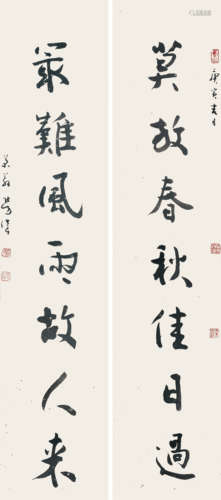 莫放春秋佳日過
最難風雨故人来
庚寅